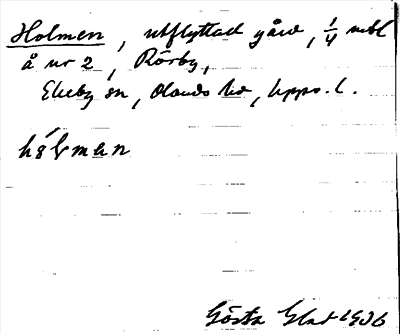 Holmen, utflyttad gård, 1/4 mtl
å nr 2, Rörby,
Ekeby sn, Olands hd, Upps. l.
hólman
Gösta Glad 1936